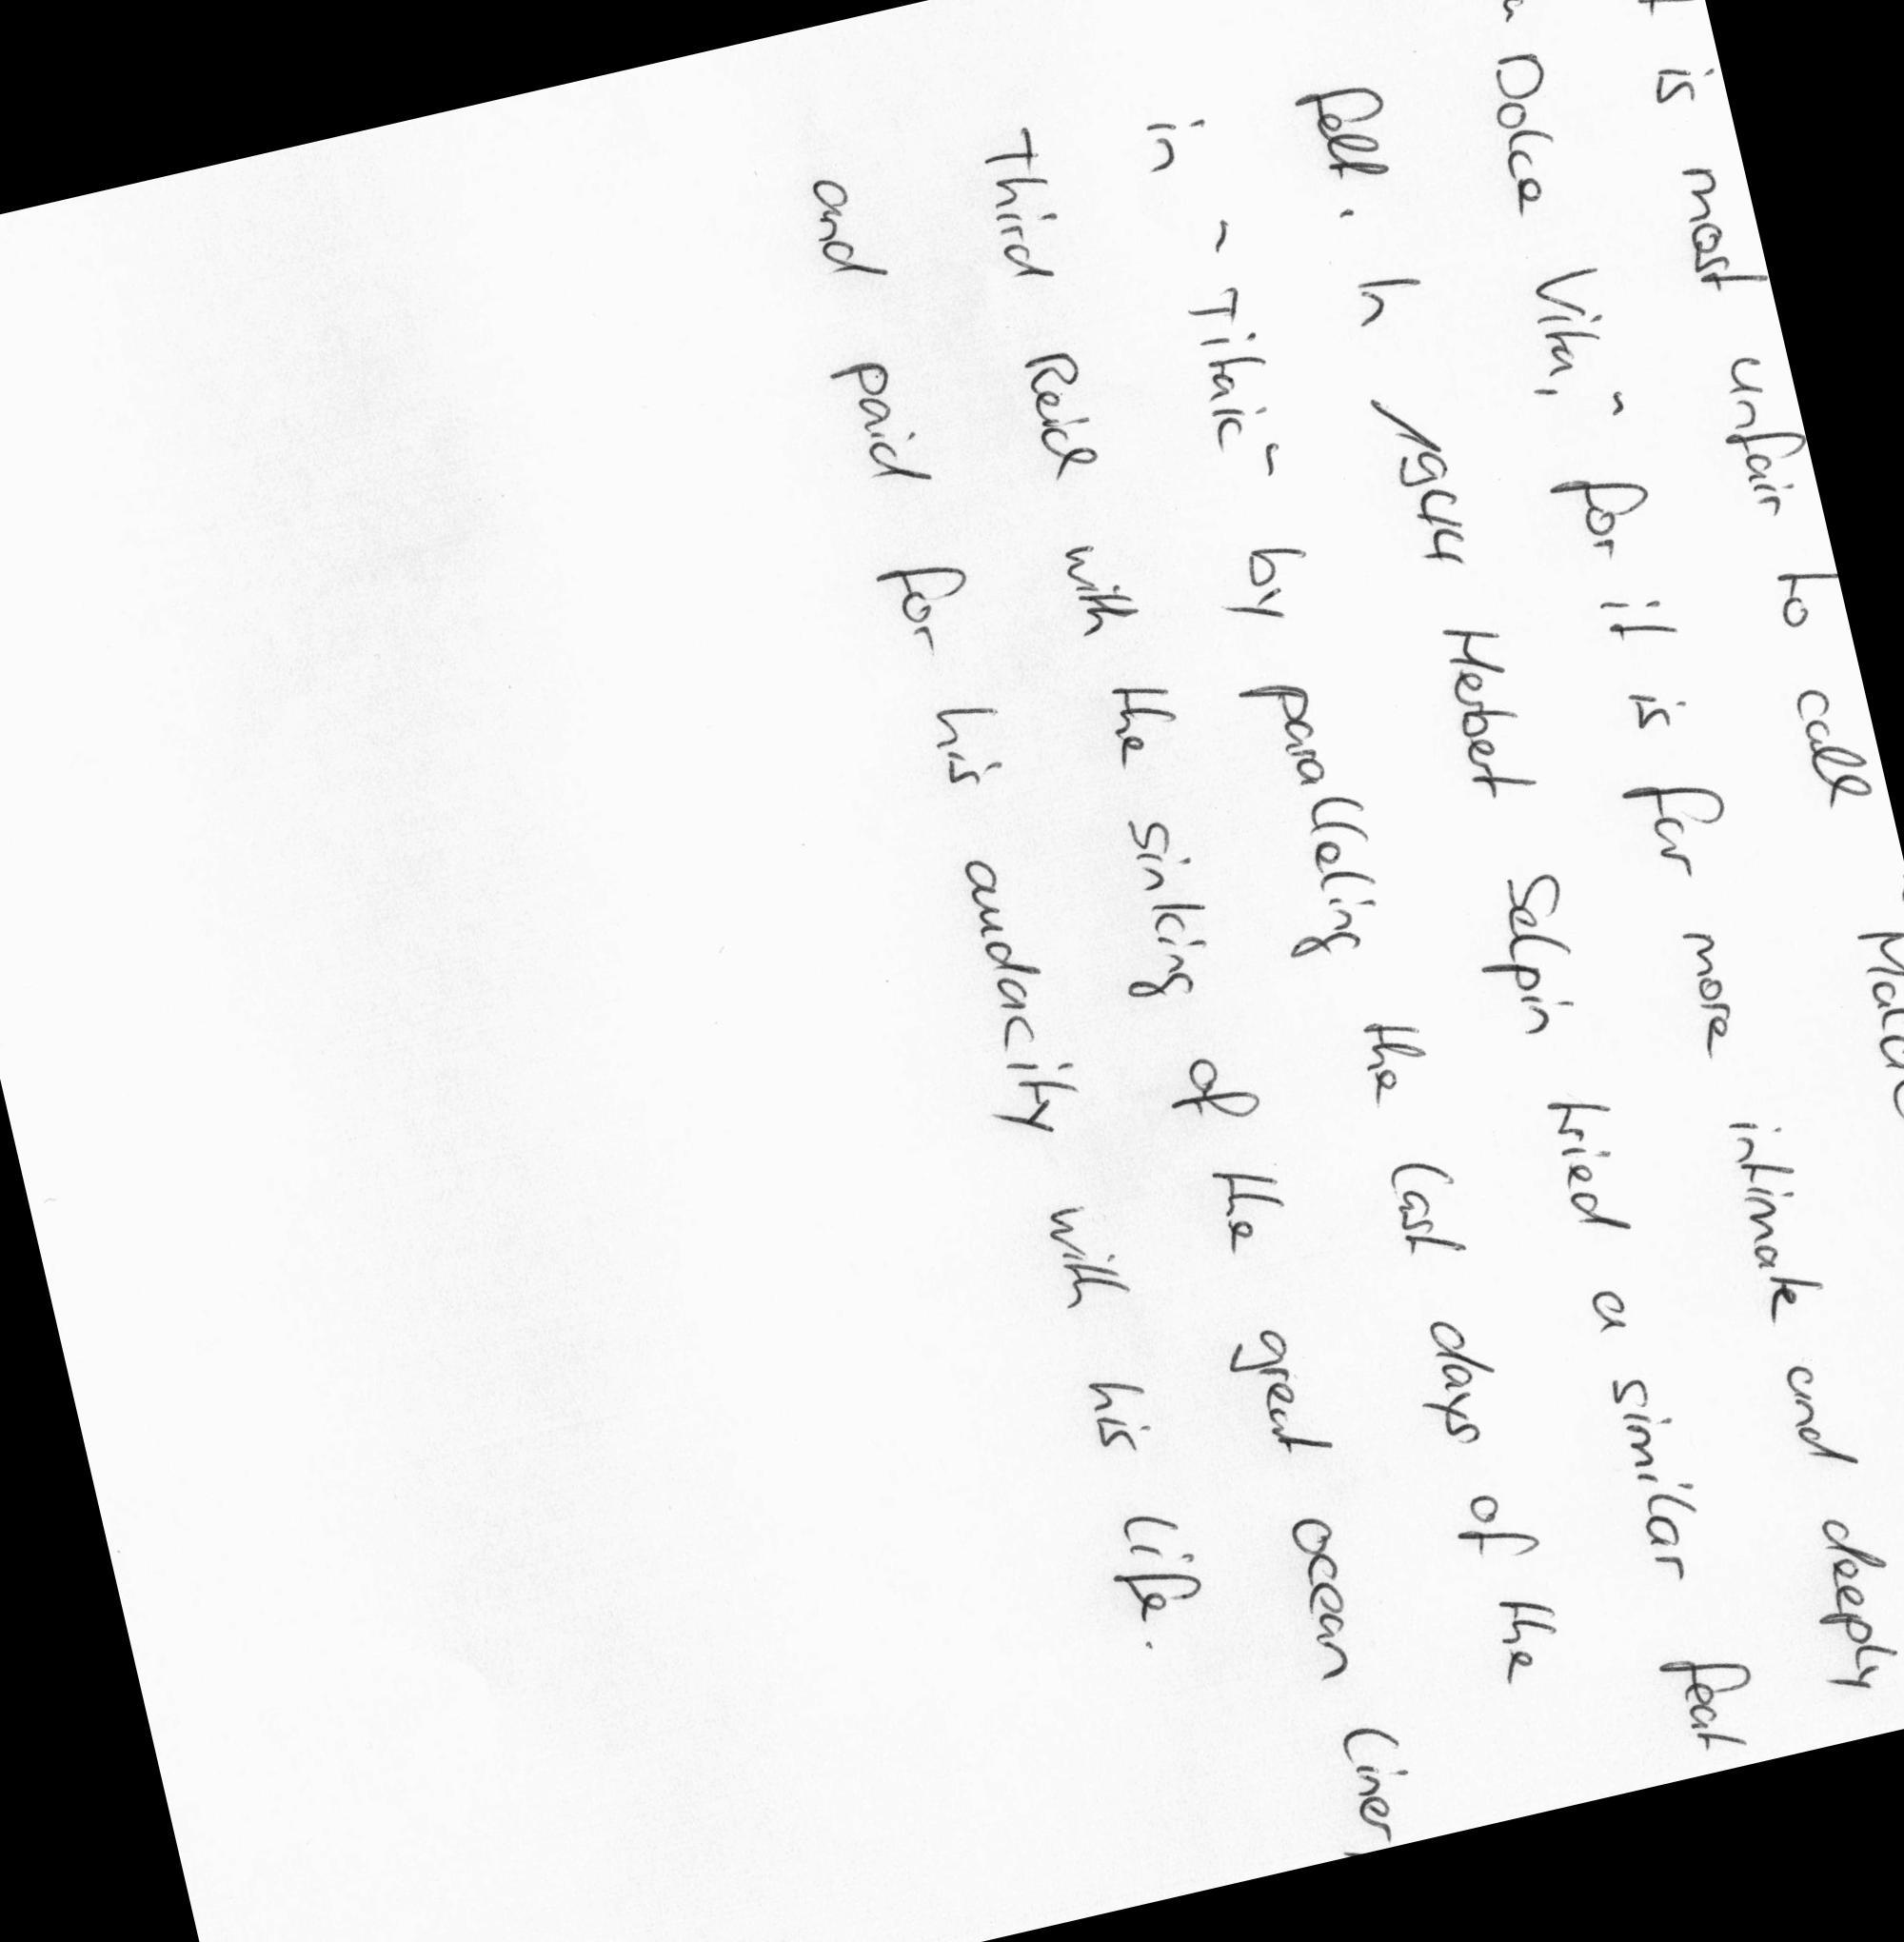 is most unfair to call
Dolce Vita," for it is far more intimate and deeply
felt. In 1944 Herbert Selpin tried a similar feat
in "Titaic" by paralleling the last days of the
Third Reich with the sinking of the great ocean liner,
and paid for his audacity with his life.